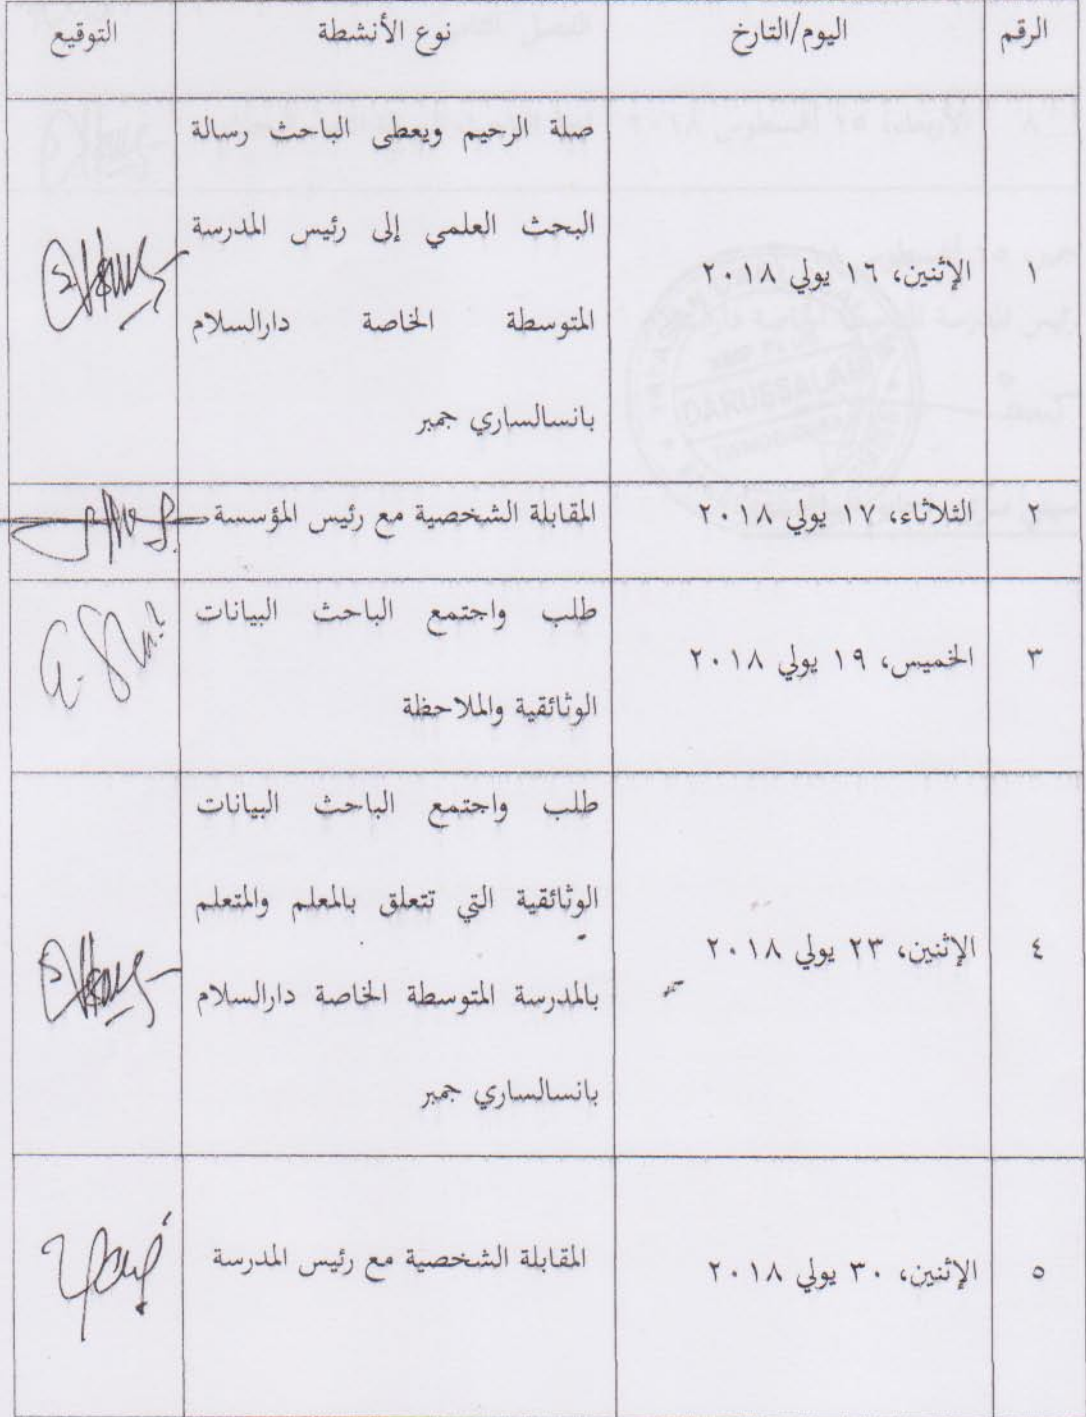 الرقم اليوم/التارخ نوع الأنشطة التوقيع
١ الإثنين، ١٦ يولي ٢٠١٨ صلة الرحيم ويعطى الباحث رسالة
البحث العلمي إلى رئيس المدرسة
المتوسطة الخاصة دارالسلام
بانسالساري جمبر
٢ الثلاثاء، ١٧ يولي ٢٠١٨ المقابلة الشخصية مع رئيس المؤسسة
٣ الخميس، ١٩ يولي ٢٠١٨ طلب واجتمع الباحث البيانات
الوثائقية والملاحظة
٤ الإثنين، ٢٣ يولي ٢٠١٨ طلب واجتمع الباحث البيانات
الوثائقية التي تتعلق بالمعلم والمتعلم
بالمدرسة المتوسطة الخاصة دارالسلام
بانسالساري جمبر
٥ الإثنين، ٣٠ يولي ٢٠١٨ المقابلة الشخصية مع رئيس المدرسة